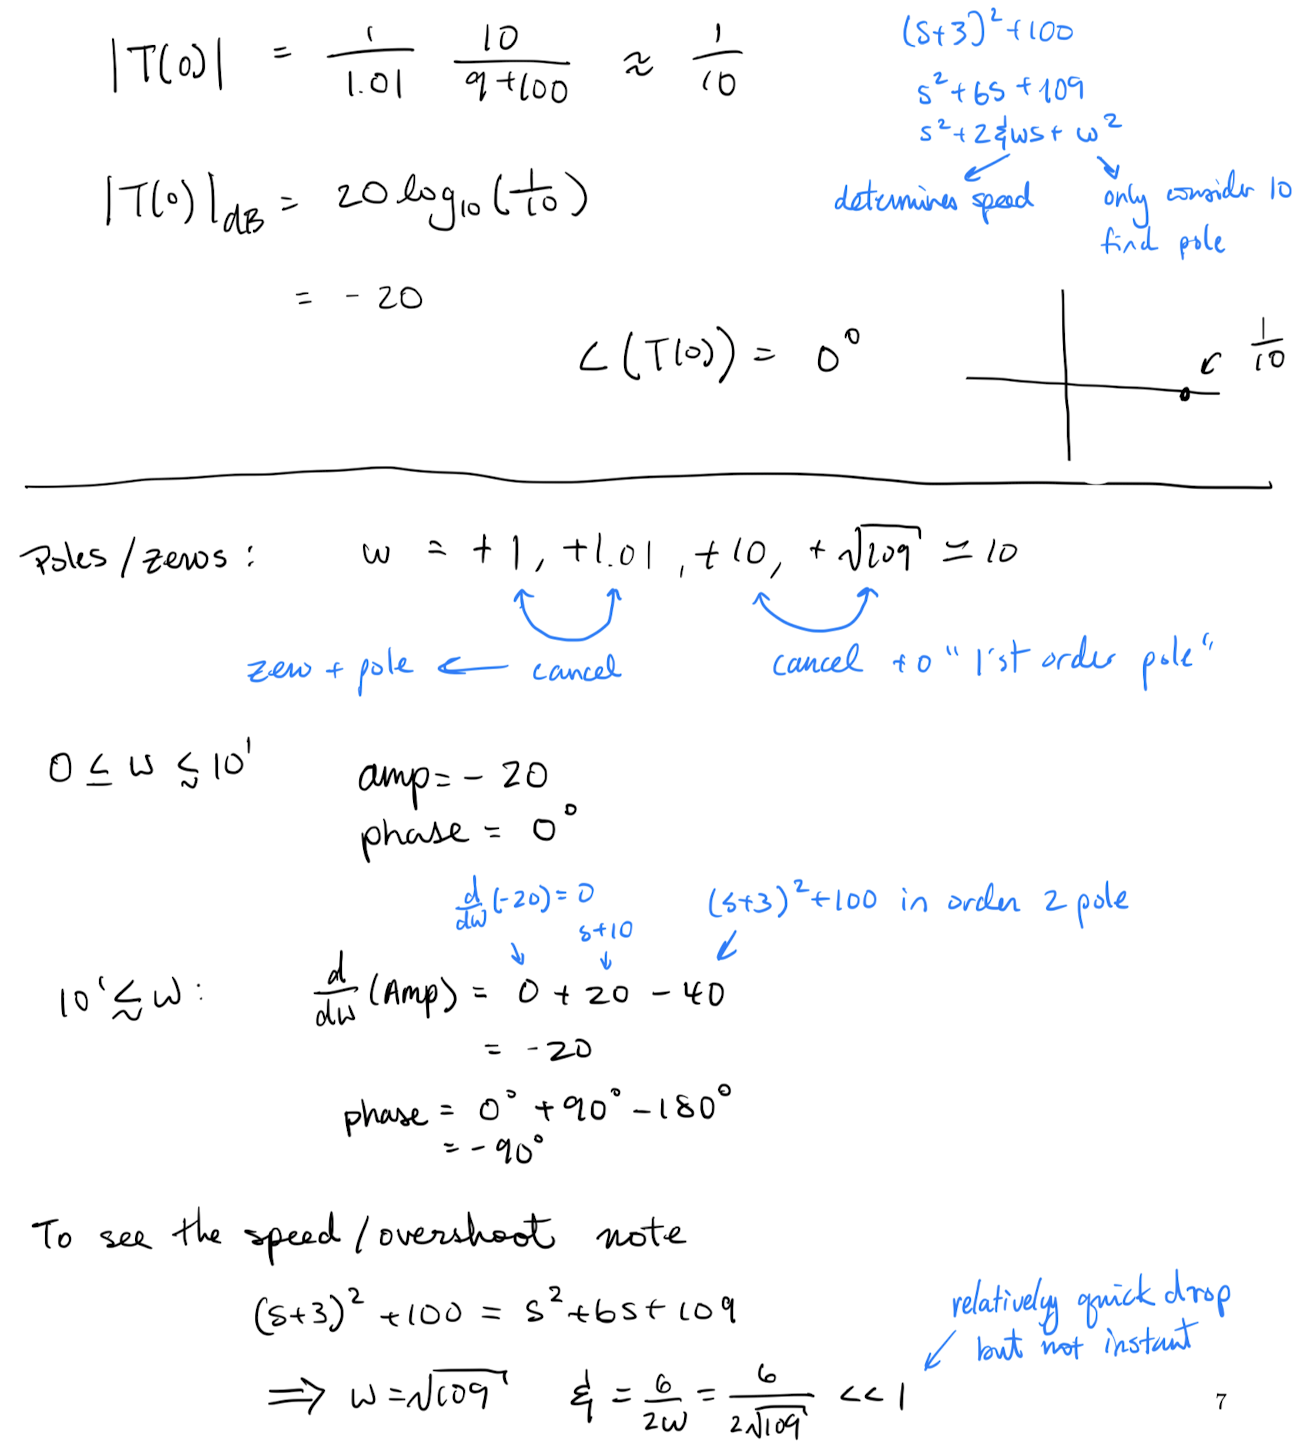 |T(0)| = 1/1.01 10/(9+100) ≈ 1/10
(s+3)² + 100
s² + 6s + 109
s² + 2ξωs + ω²
determines speed
only consider 10
find pole
|T(0)|dB = 20 log₁₀(1/10)
= -20
∠(T(0)) = 0°
1/10
Poles/zeros: ω = +1, +1.01, +10, +√109 ≃ 10
zero + pole ← cancel
cancel to "1'st order pole"
0 ≤ ω ≲ 10¹
amp = -20
phase = 0°
d/dω(-20) = 0
s+10
(s+3)² + 100 in order 2 pole
10¹ ≲ ω: d/dω (Amp) = 0 + 20 - 40
= -20
phase = 0° + 90° - 180°
= -90°
To see the speed/overshoot note
(s+3)² + 100 = s² + 6s + 109
relatively quick drop
but not instant
⟹ ω = √109 ξ = 6/2ω = 6/2√109 << 1
7